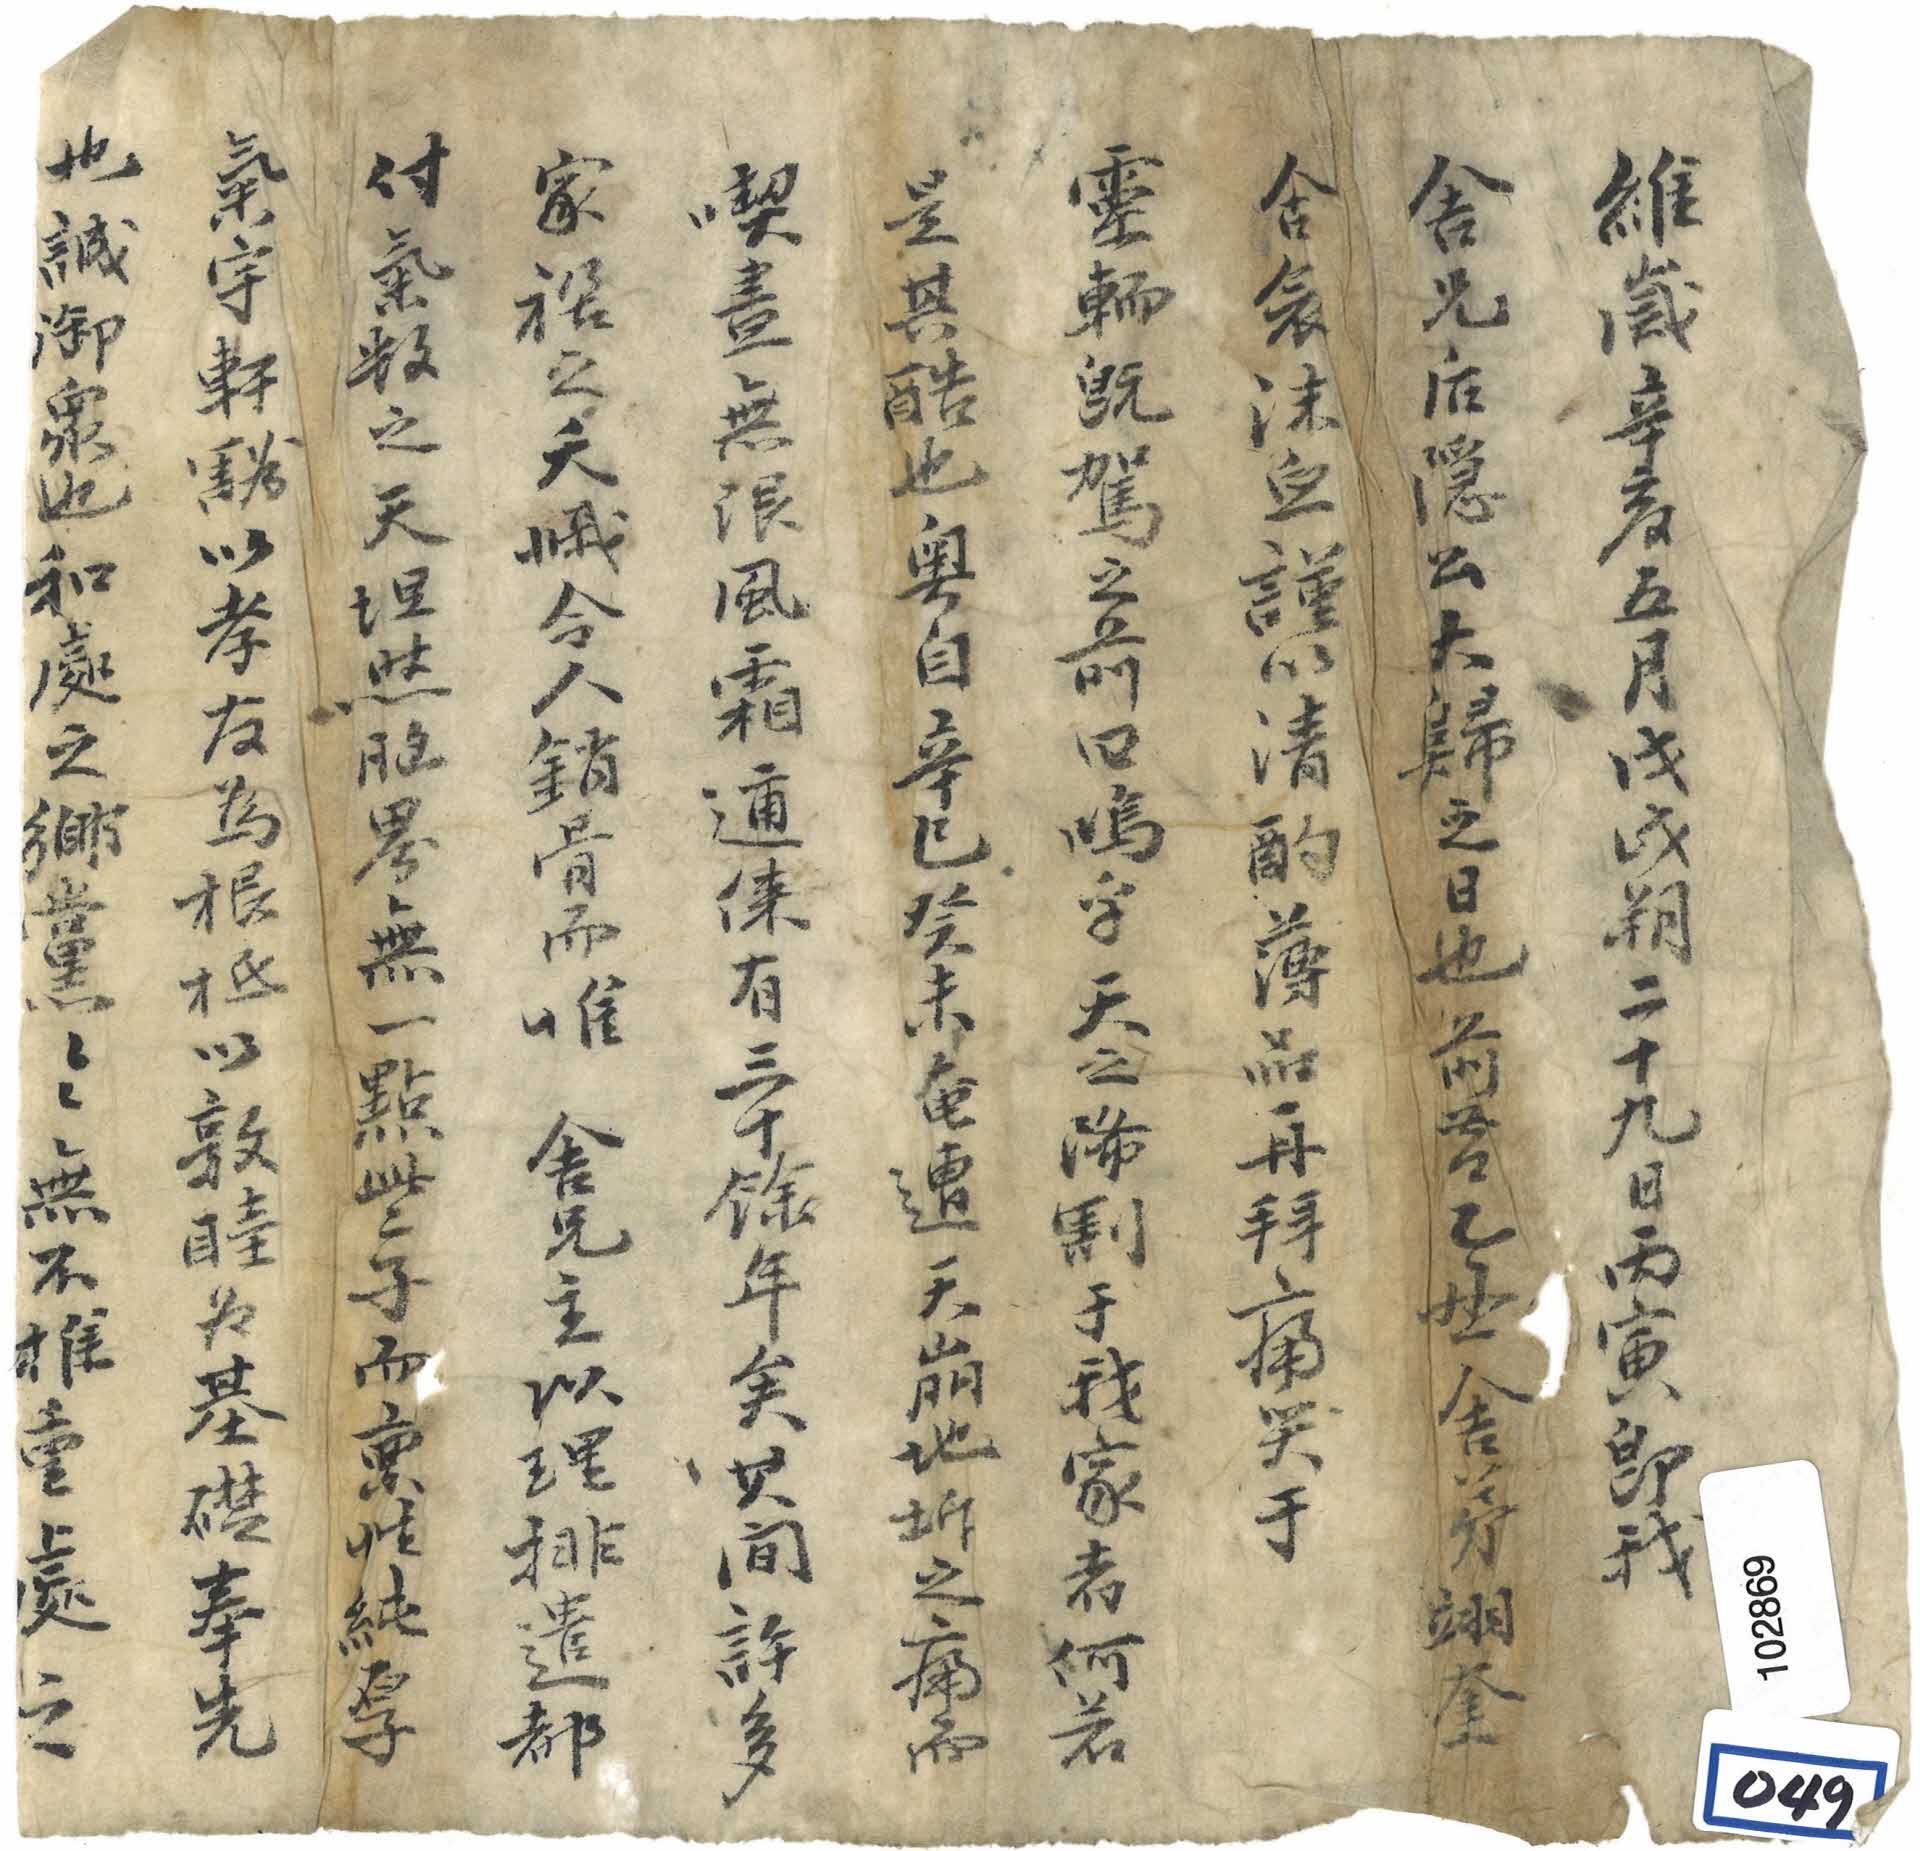 維歲辛亥五月戊戌朔二十九日丙寅卽我
舍兄后隱公大歸之日也前昔乙丑舍弟翊奎
含哀沫血謹以清酌薄品再拜痛哭于
靈輀旣駕之前曰嗚乎天之沸割于我家者何若
是其酷也粤自辛巳癸未奄遭天崩地坼之痛而
喫盡無限風霜邇來有三十餘年矣其間許多
家禍之夭慽令人銷骨而唯 舍兄主以理排遣都
付氣數之天坦然胸界無一點些子而稟性純厚
氣宇軒豁以孝友爲根柢以敦睦爲基礎奉先
也誠御衆也和處之鄕黨〻〻無不推重處之
102869
049